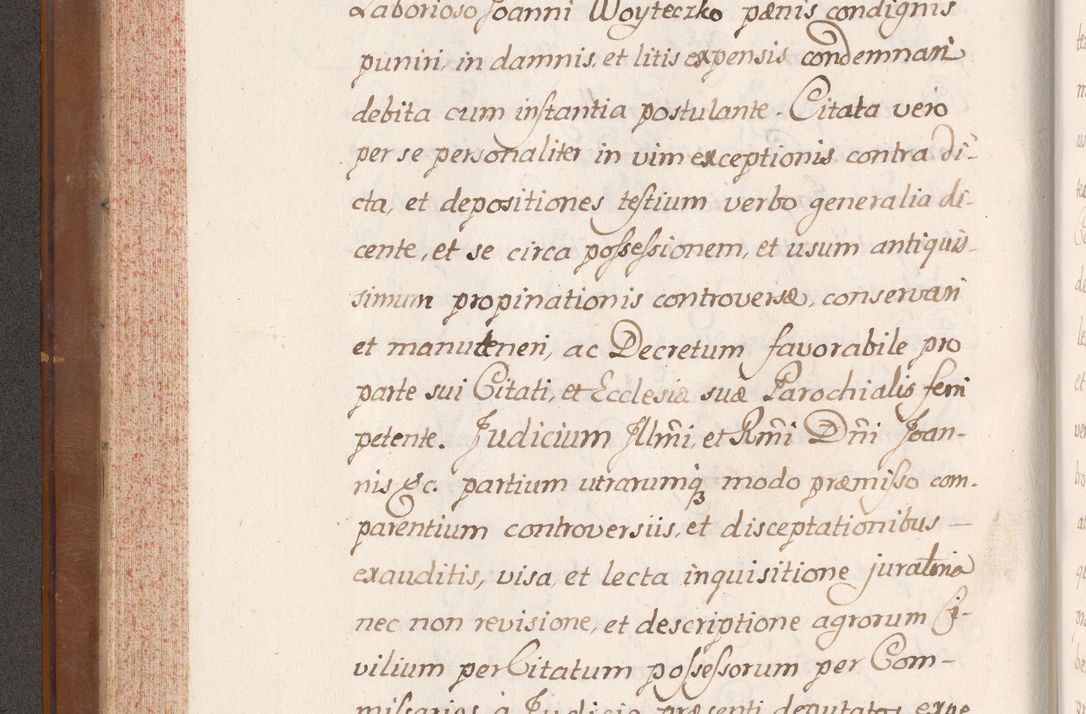 Laborioso Joanni Woyteczko pænis condignis
puniri, in damnis, et litis expensis condemnari
debita cum instantia postulante. Citata vero
per se personaliter in vim exceptionis contra di-
cta, et depositiones testium verbo generalia di-
cente, et se circa possessionem, et usum antiquis-
simum propinationis controversæ, conservari
et manuteneri, ac Decretum favorabile pro
parte sui Citati, et Ecclesiæ suæ Parochialis ferri
petente. Judicium Illm̃i, et Rm̃i Dñi Joan-
nis &c. partium utrarumq3 modo præmisso com-
parentium controversiis, et disceptationibus —
exauditis, visa, et lecta inquisitione juratoria
nec non revisione, et descriptione agrorum Ci-
vilium per Citatum possessorum per Com-
missarios à Judicio præsenti deputatos expe